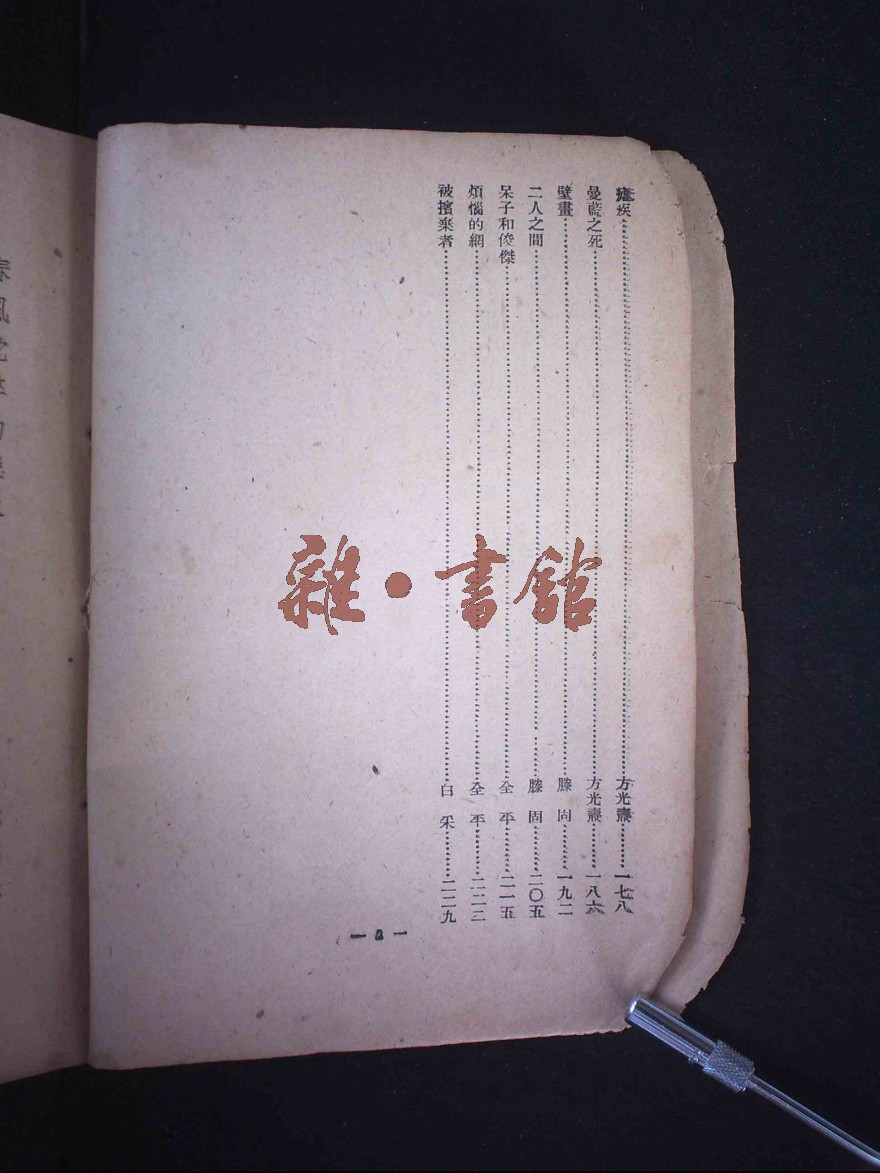 瘧疾……方光燾……一七八
曼藍之死……方光燾……一八六
壁畫……滕固……一九二
二人之間……滕固……二〇五
呆子和俊傑……全平……二一五
煩惱的網……全平……二二三
被擯棄者……白采……二二九
— 2 —
雜·書館